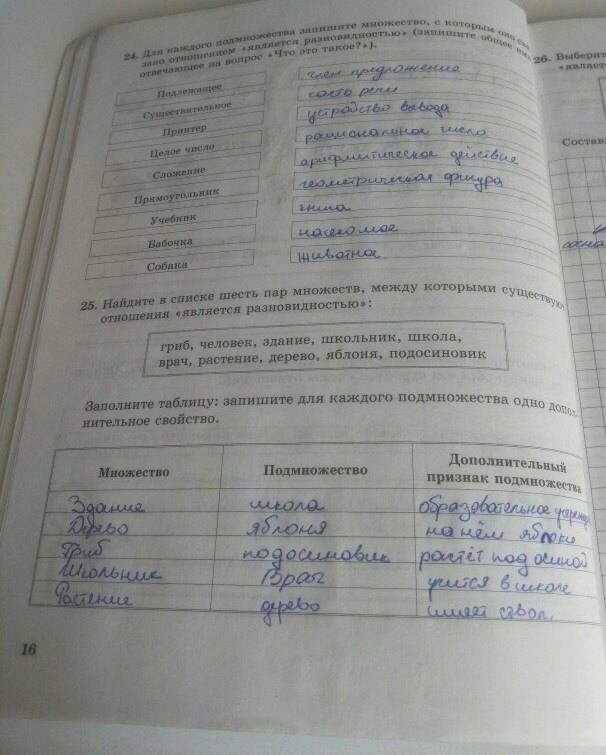 24. Для каждого подмножества запишите множество, с которым оно свя-
зано отношением «является разновидностью» (запишите общее имя,
отвечающее на вопрос «Что это такое?»).
Подлежащее член предложение
Существительное часть речи
Принтер устройство вывода
Целое число рациональное число
Сложение арифмитическое действие
Прямоугольник геометрическая фигура
Учебник книга
Бабочка насекомое
Собака животное
25. Найдите в списке шесть пар множеств, между которыми существую
отношения «является разновидностью»:
гриб, человек, здание, школьник, школа,
врач, растение, дерево, яблоня, подосиновик
Заполните таблицу: запишите для каждого подмножества одно допол-
нительное свойство.
Множество Подмножество Дополнительный
признак подмножества
Здание школа образовательное
Дерево яблоня на нём яблоки
Гриб подосиновик растёт под осиной
Школьник Врач учится в школе
Растение дерево имеет ствол.
16
26. Выберит
«являет
Состав